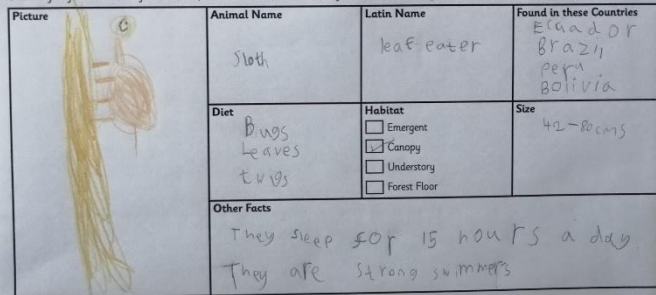 Picture
Animal Name
Sloth
Latin Name
leaf eater
Found in these Countries
Ecuador
Brazil
Peru
Bolivia
Diet
Bugs
Leaves
twigs
Habitat
Emergent
Canopy
Understory
Forest Floor
Size
42-80cms
Other Facts
They sleep for 15 hours a day
They are strong swimmers